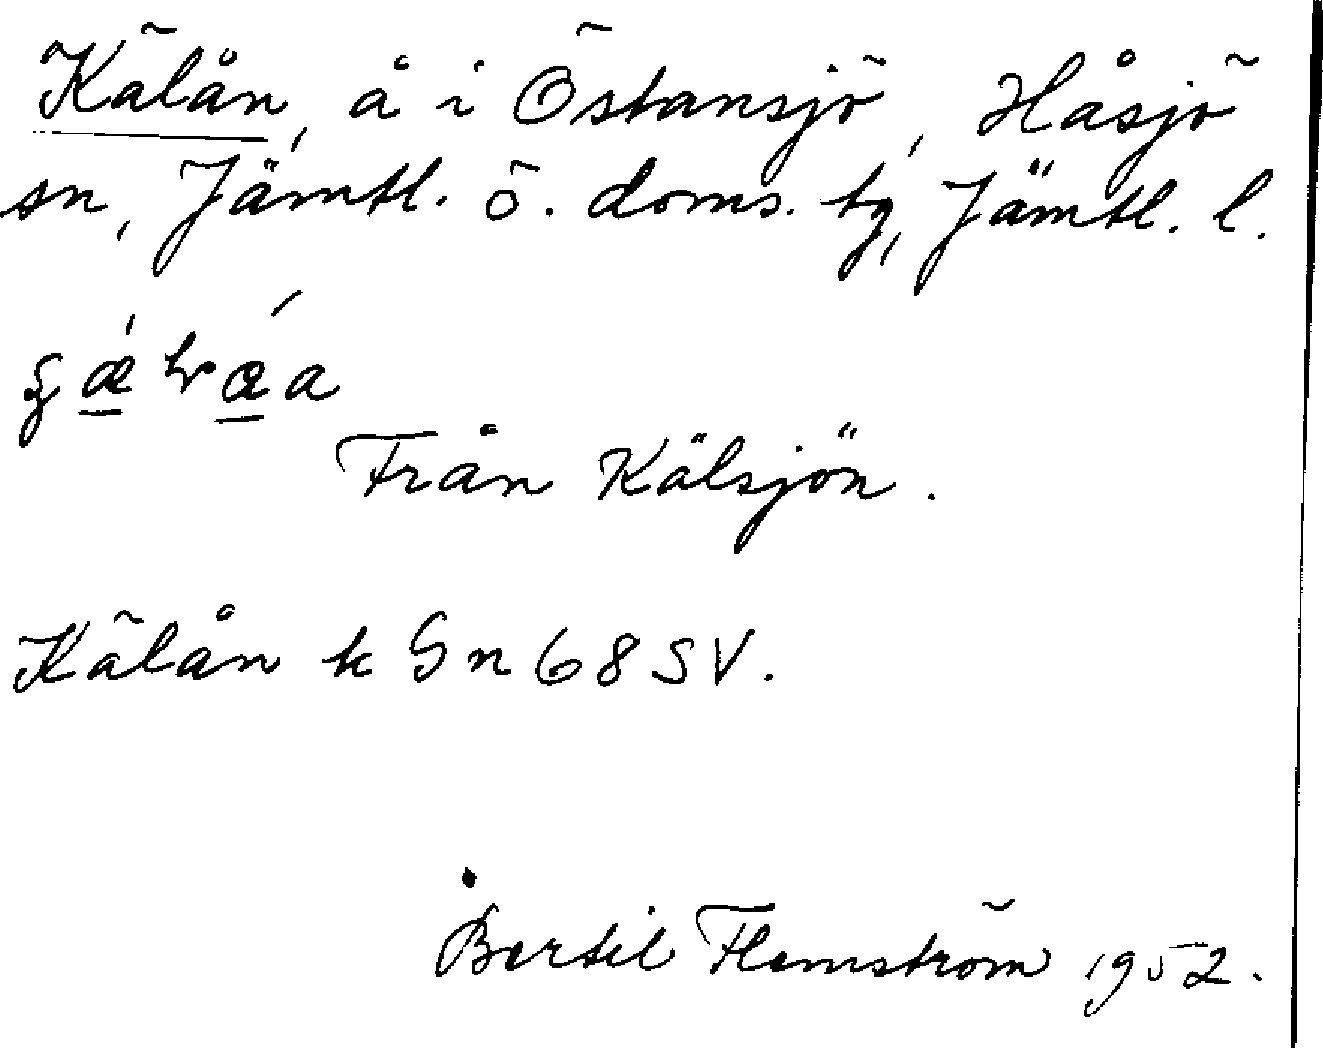 Kälån, å i Östansjö, Håsjö
sn, Jämtl. ö. doms. tg, Jämtl. l.
Från Kälsjön.
Kälån k Gn 68 SV.
Bertil Flemström 1952.